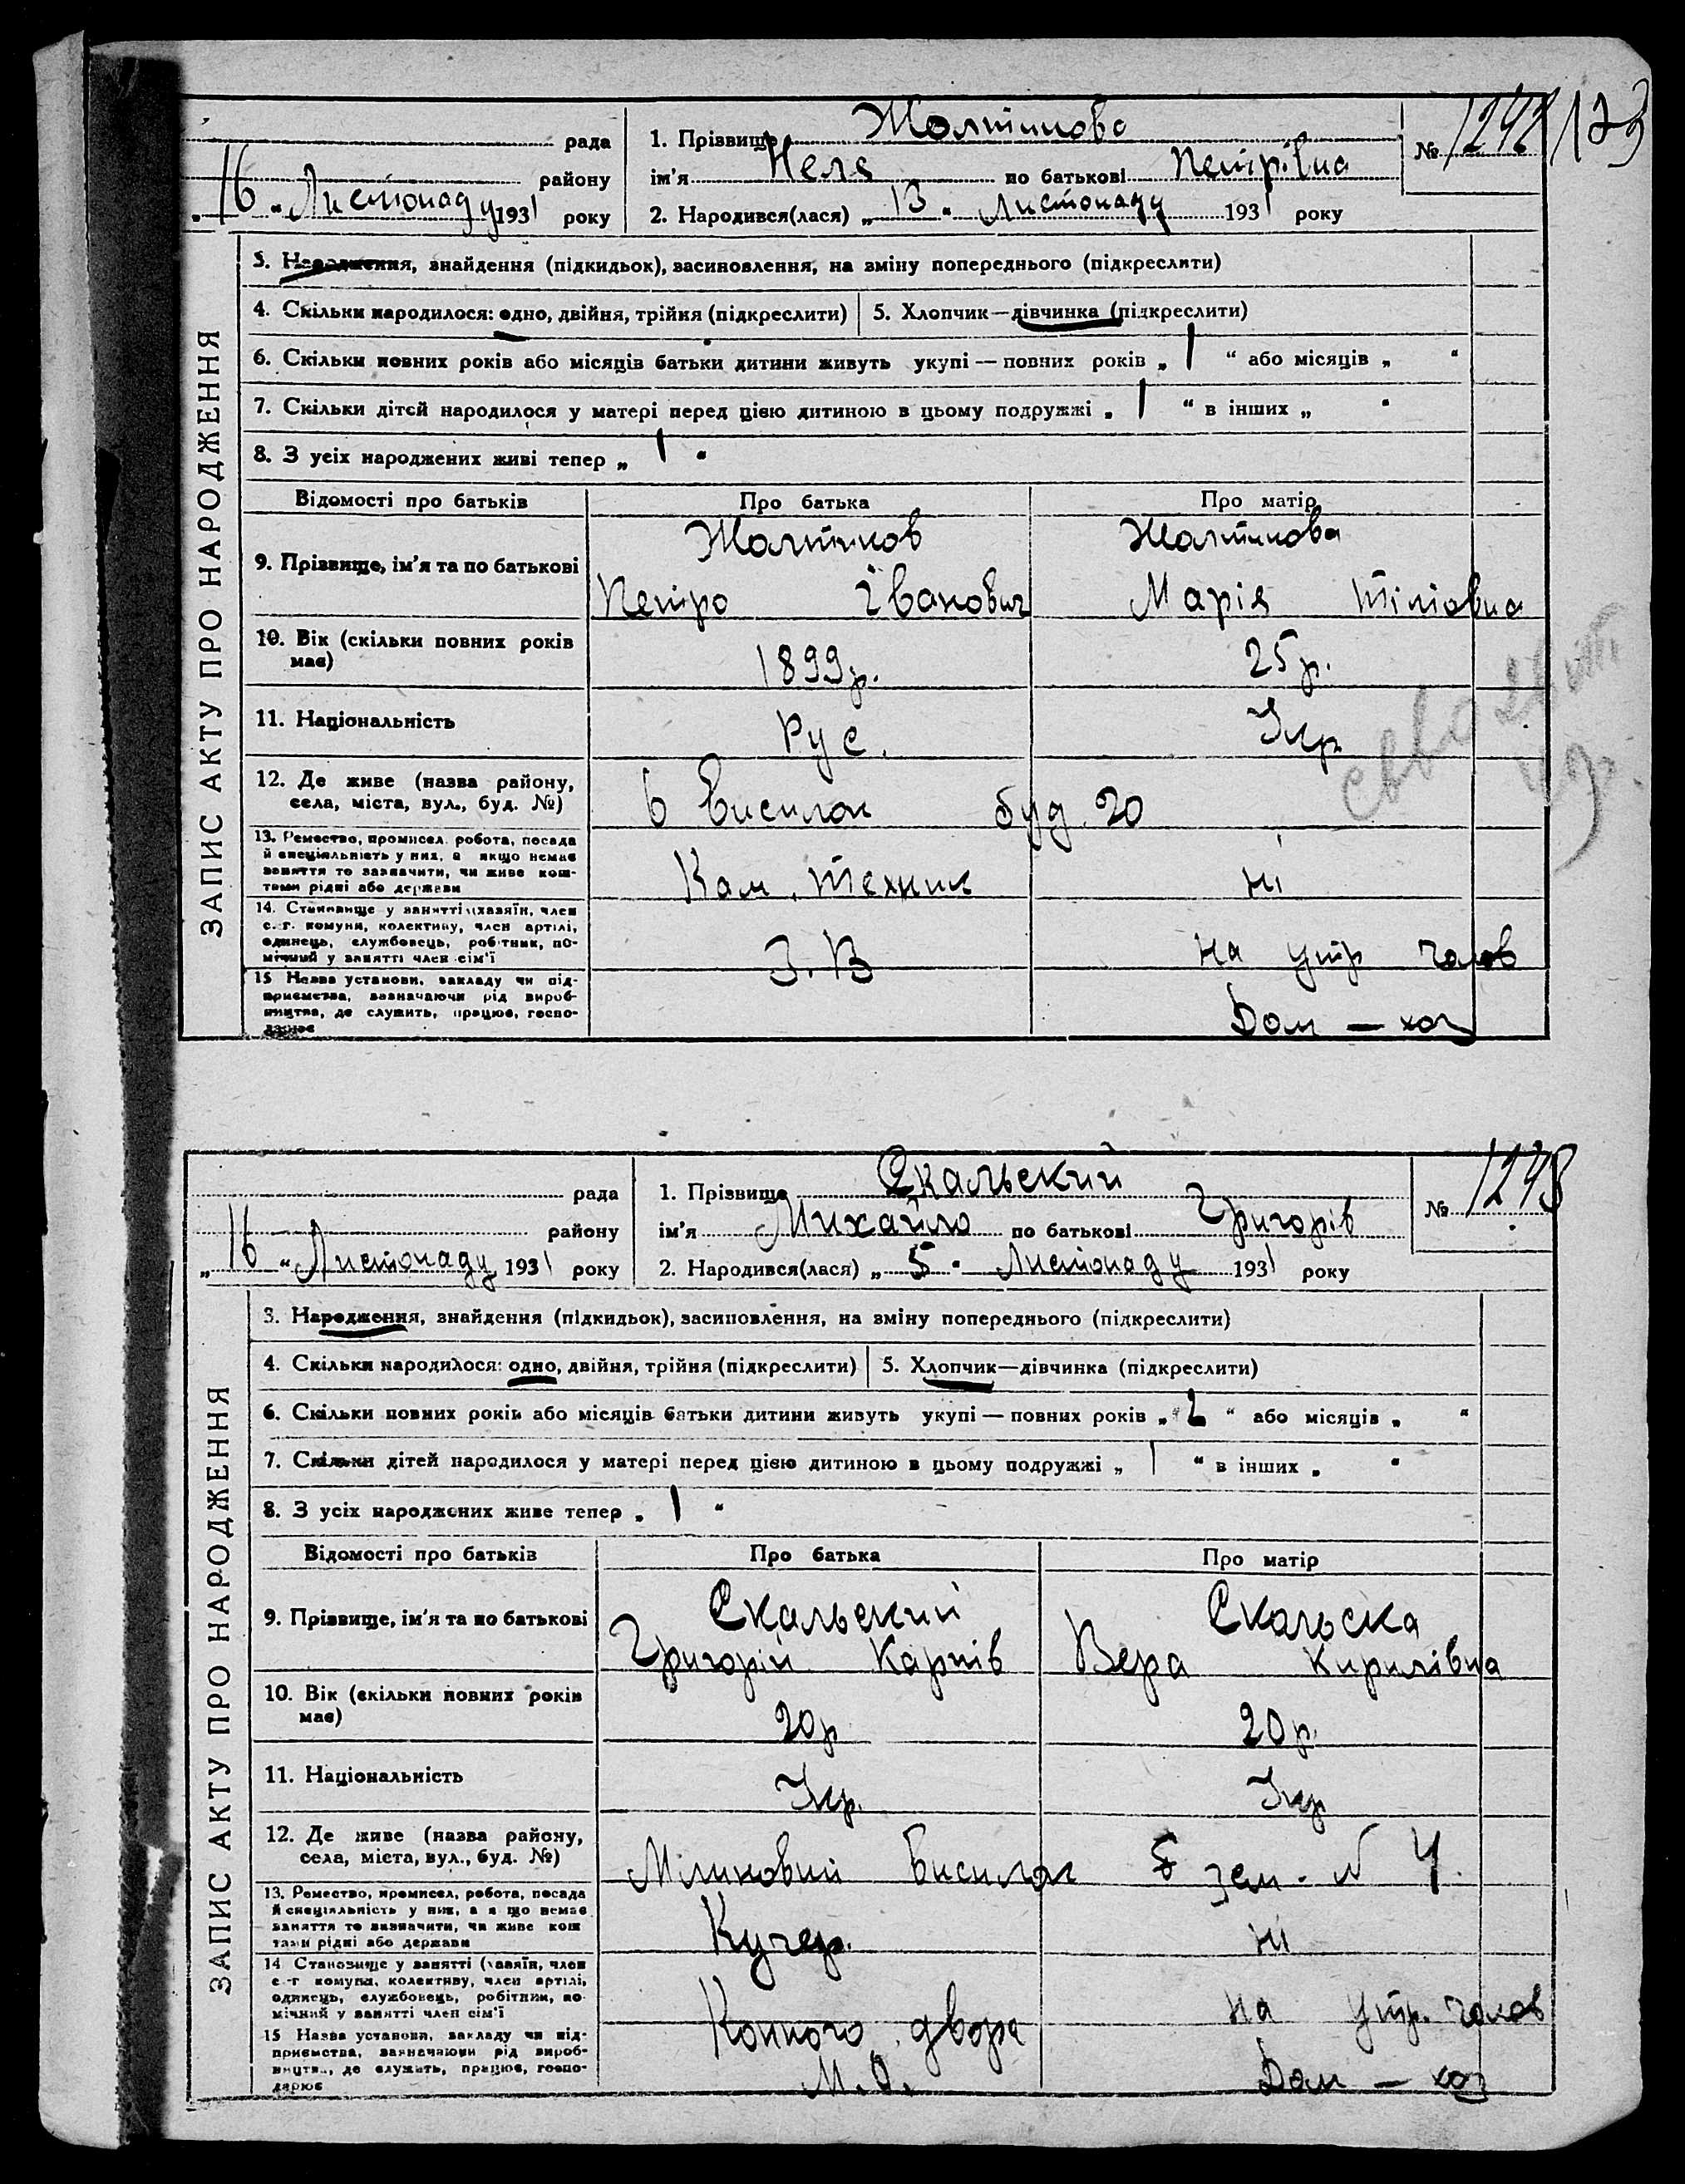 173
рада
1. Прізвище Жолтикова
№ 1242
району
ім'я Неля по батькові Петрівна
„16“ Листопаду 1931 року
2. Народився(лася) „13“ Листопаду 1931 року
ЗАПИС АКТУ ПРО НАРОДЖЕННЯ
3. Народження, знайдення (підкидьок), засиновлення, на зміну попереднього (підкреслити)
4. Скільки народилося: одно, двійня, трійня (підкреслити) 5. Хлопчик—дівчинка (підкреслити)
6. Скільки повних років або місяців батьки дитини живуть укупі — повних років „1“ або місяців „ “
7. Скільки дітей народилося у матері перед цією дитиною в цьому подружжі „1“ в інших „ “
8. З усіх народжених живі тепер „1“
Відомості про батьків Про батька Про матір
9. Прізвище, ім'я та по батькові
Жолтиков Жолтикова
Петро Іванович Марія
10. Вік (скільки повних років має)
1899р. 25р.
11. Національність
Рус. Укр.
12. Де живе (назва району,
села, міста, вул., буд. №)
6 Висилок буд. 20
13. Ремество, промисел, робота, посада
й спеціяльність у них, а якщо немає
заняття то зазначити, чи живе кош-
тами рідні або держави
Ком. техник ні
14. Становище у занятті (хазяїн, член
с.-г. комуни, колективу, член артілі,
одинець, службовець, робітник, по-
мічний у занятті член сім'ї
З. В на утр чолов
15 Назва установи, закладу чи під-
приємства, зазначаючи рід вироб-
ництва, де служить, працює, госпо-
дарює
Дом — хоз
рада
1. Прізвище Скальский
№ 1243
району
ім'я Михайло по батькові Григорів
„16“ Листопаду 1931 року
2. Народився(лася) „5“ Листопаду 1931 року
ЗАПИС АКТУ ПРО НАРОДЖЕННЯ
3. Народження, знайдення (підкидьок), засиновлення, на зміну попереднього (підкреслити)
4. Скільки народилося: одно, двійня, трійня (підкреслити) 5. Хлопчик—дівчинка (підкреслити)
6. Скільки повних років або місяців батьки дитини живуть укупі — повних років „2“ або місяців „ “
7. Скільки дітей народилося у матері перед цією дитиною в цьому подружжі „1“ в інших „ “
8. З усіх народжених живе тепер „1“
Відомості про батьків Про батька Про матір
9. Прізвище, ім'я та по батькові
Скальский Скальска
Григорій Карпів Вера Кирилівна
10. Вік (скільки повних років має)
20р 20р.
11. Національність
Укр. Укр
12. Де живе (назва району,
села, міста, вул., буд. №)
Мілиновий Висилок зем. № 4.
13. Ремество, промисел, робота, посада
й спеціяльність у них, а якщо немає
заняття то зазначити, чи живе кош
тами рідні або держави
Кучер. ні
14 Становище у занятті (хазяїн, член
с.-г комуни, колективу, член артілі,
одинець, службовець, робітник, по-
мічний у занятті член сім'ї
Конного двора на утр. чолов
15 Назва установи, закладу чи під-
приємства, зазначаючи рід вироб-
ництва, де служить, працює, госпо-
дарює
М.О. Дом — хоз